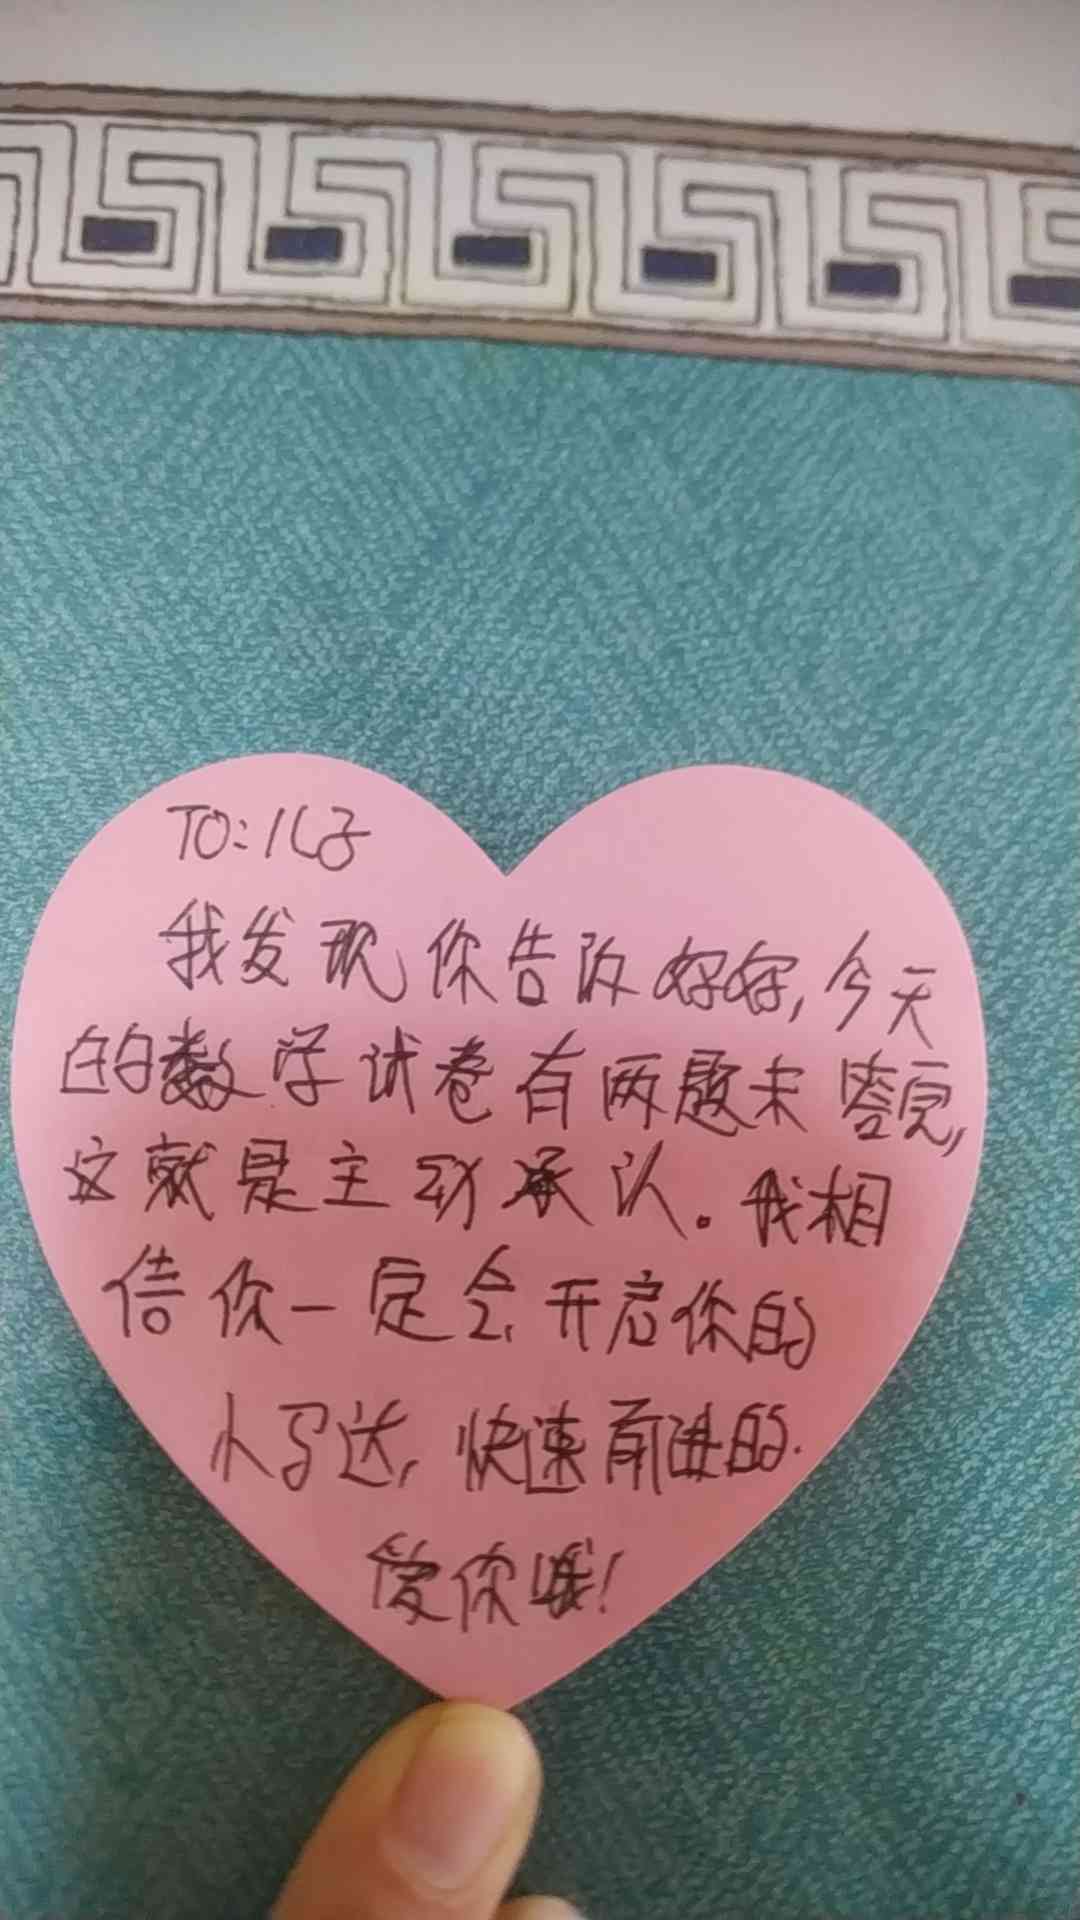 TO:儿子
我发现你告诉妈妈,今天
的数学试卷有两题未答完,
这就是主动承认。我相
信你一定会开启你的
小马达,快速前进的.
爱你哦!